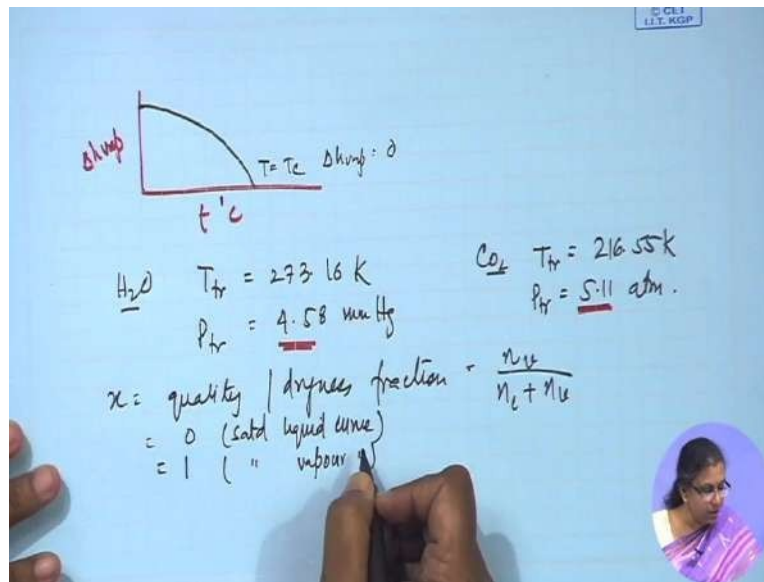 © CET
I.I.T. KGP
Δhvap
T = Tc Δhvap = 0
t °C
H2O Ttr = 273.16 K
Ptr = 4.58 mm Hg
CO2 Ttr = 216.55 K
Ptr = 5.11 atm.
x = quality / dryness fraction = nv / nl + nv
= 0 (satd liquid curve)
= 1 ( " vapour ")